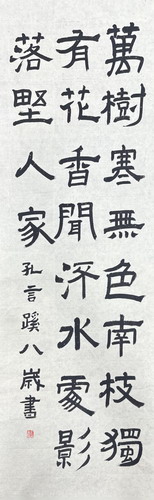 萬樹寒無色南枝獨
有花香聞汙水處影
落野人家 孔言蹊八歲書